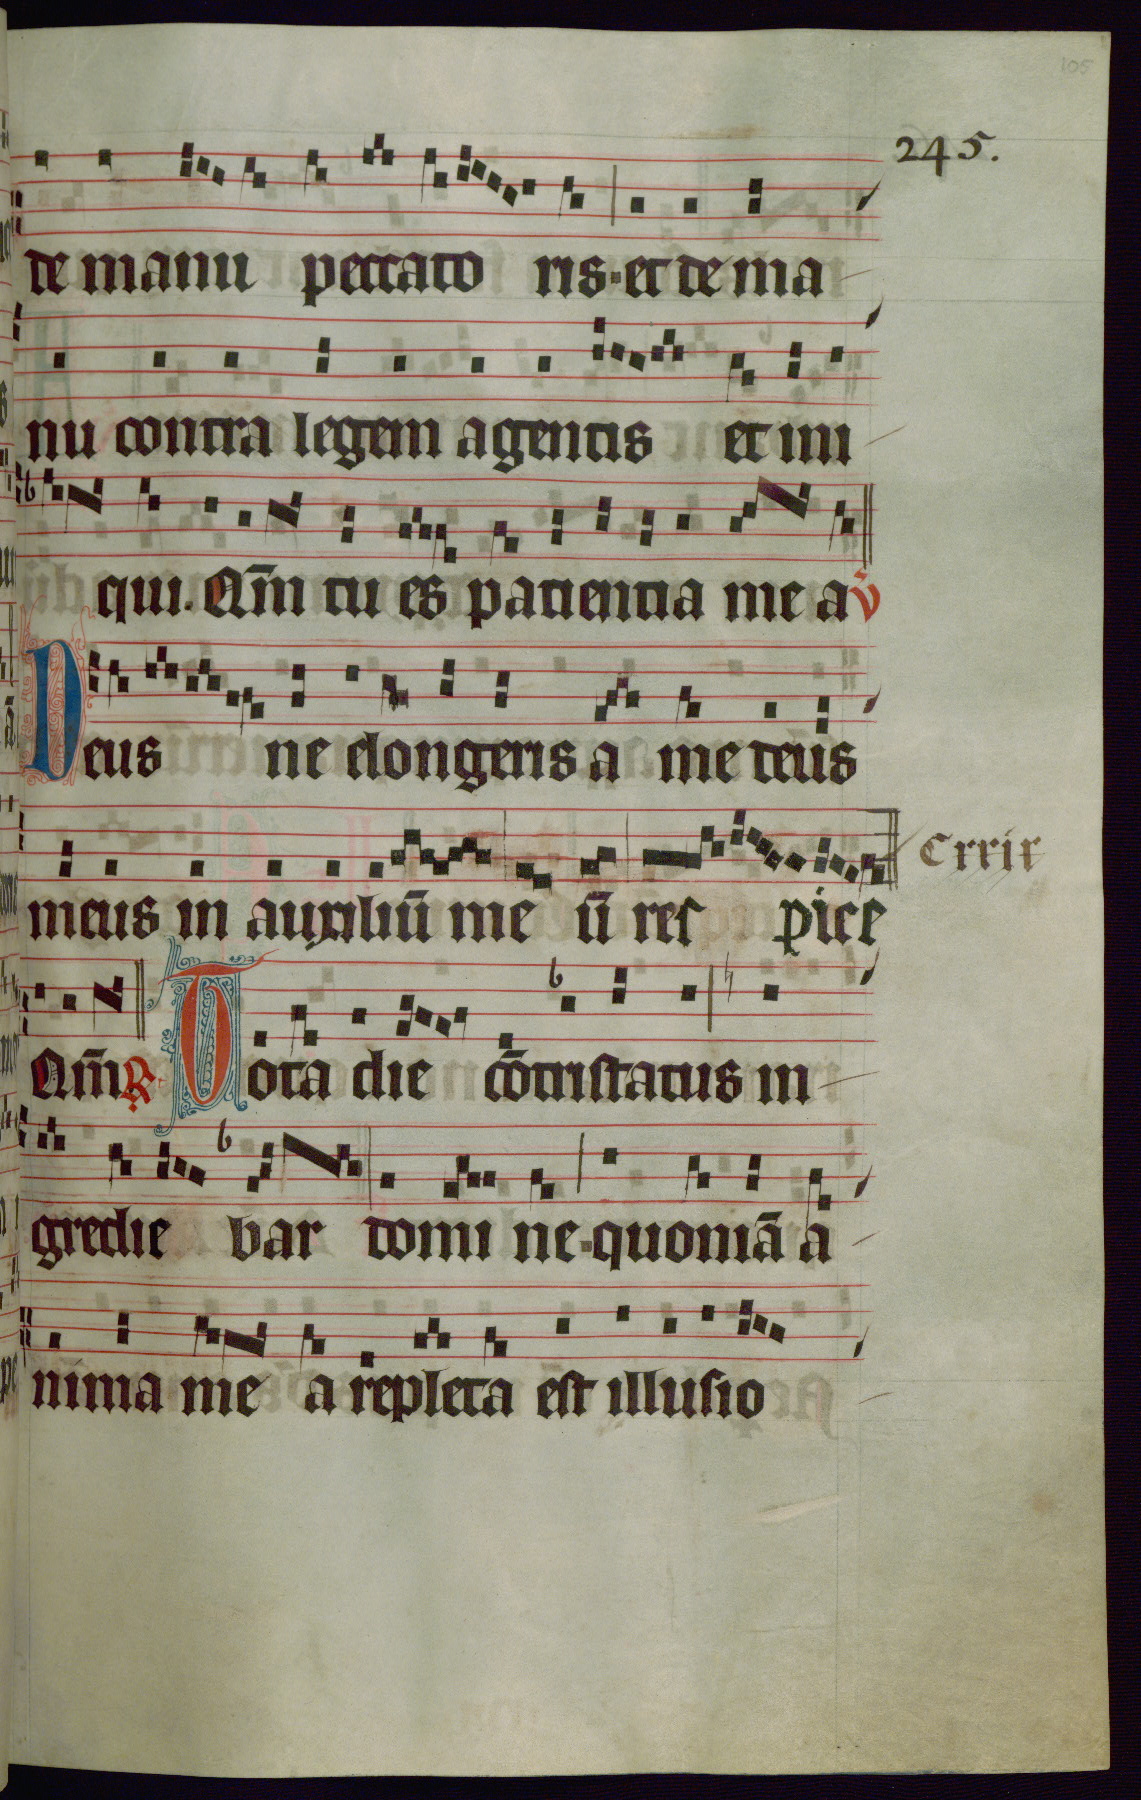 105
245.
de manu peccato ris. et de ma
nu contra legem agentis et ini
qui. Qm̄ tu es patientia me a v̄
Deus ne elongeris a me deus
meus in auxiliū me ū respice
Cxxix
Qm̄ R Tota die cōtristatus in
gredie bar domi ne. quoniā a
nima me a repleta est illusio